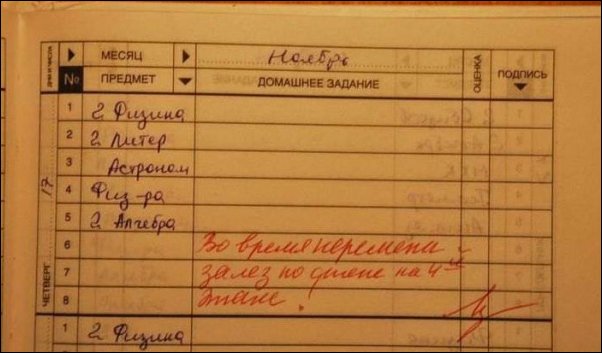 ДНИ И ЧИСЛА МЕСЯЦ Ноябрь ОЦЕНКА ПОДПИСЬ
№ ПРЕДМЕТ ДОМАШНЕЕ ЗАДАНИЕ
1 2 Физика
2 2 Литер
3 Астроном
4 Физ-ра
5 2 Алгебра
6 Во время перемены
7 залез по стене на 4ый
8 этаж!
ЧЕТВЕРГ 17
1 2 Физика